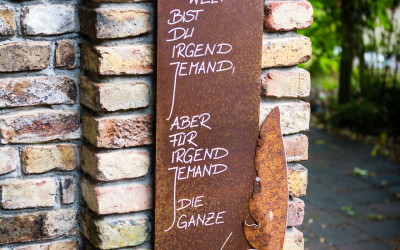 WELT
BIST
DU
IRGEND
JEMAND,
ABER
FÜR
IRGEND
JEMAND
DIE
GANZE